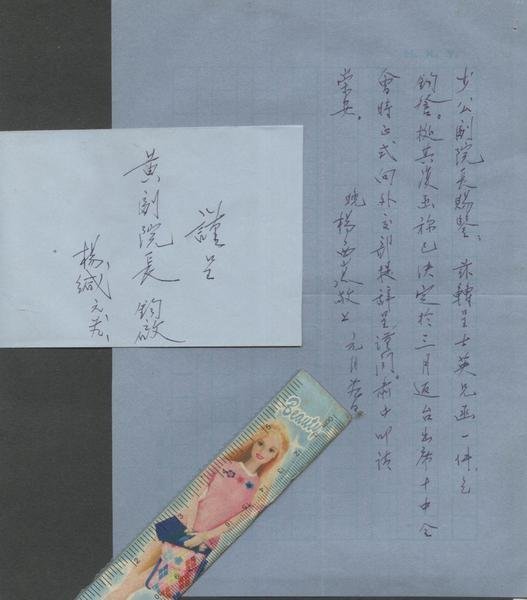 H. K. Y.
少公副院長賜鑒：茲轉呈士英兄函一件，乞
鈞詧。據其復函稱已決定於三月返台出席十中全
會時正式向外交部提辭呈，謹聞。肅此叩請
崇安。
晚楊西崑敬上 元月
謹呈
黃副院長 鈞啟
楊緘 元、
Beauty